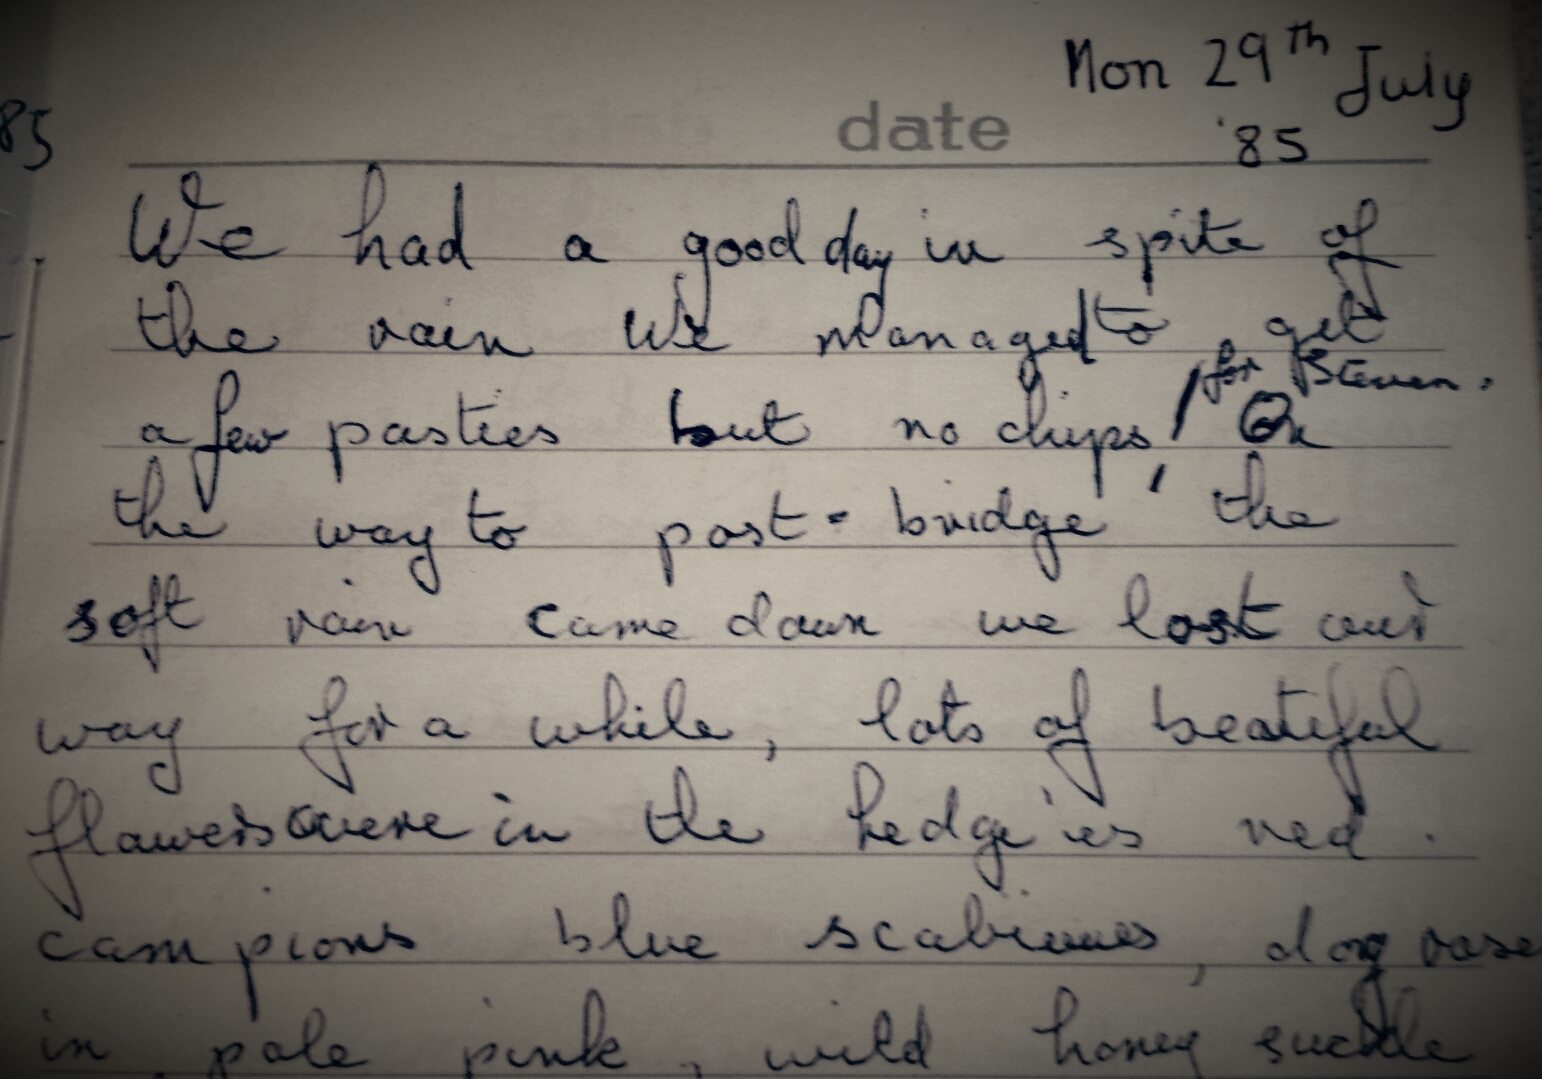 Mon 29th July
date
'85
85
We had a good day in spite of
the rain We managed to get
for Steven.
a few pasties but no chips / On
the way to post-bridge, the
soft rain came down we lost our
way for a while, lots of beatiful
flowers were in the hedgies red
campions blue scabiouses, dog rose
in pale pink, wild honey suckle